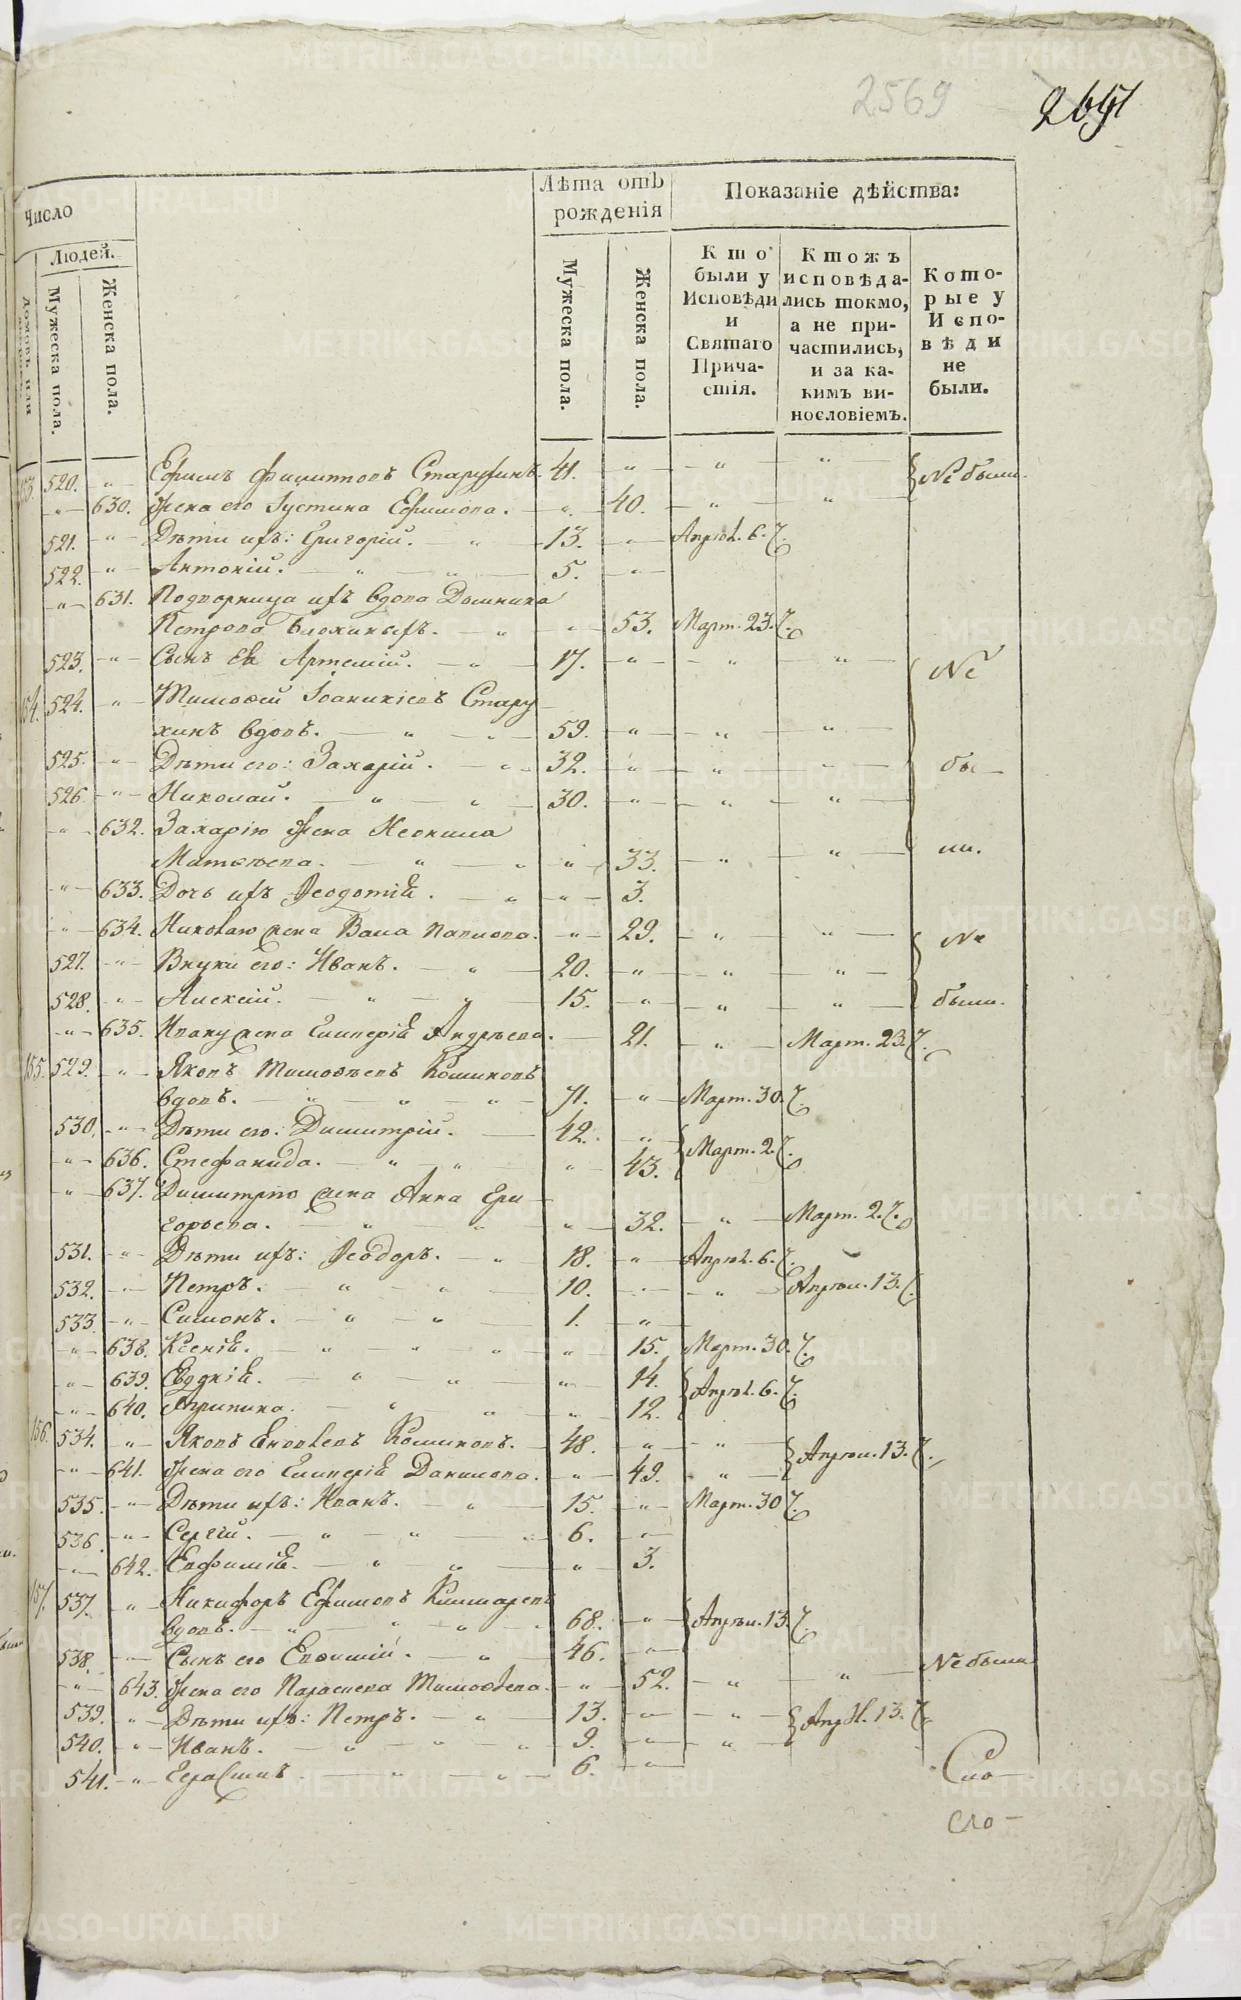 METRIKI.GASO-URAL.RU
2569
Число
Людей.
Мужеска пола.
Женска пола.
Лѣта отъ рожденія
Мужеска пола.
Женска пола.
Показаніе дѣйства:
Кто были у Исповѣди и Святаго Причастія.
Ктожъ исповѣдались токмо, а не причастились, и за какимъ винословіемъ.
Которые у Исповѣди не были.
520. Ефимъ Старухинъ. 41. Не были.
630. Жена его Іустина Ефимова. 40.
521. Дѣти ихъ: Григорій. 13. Апрѣл. 6.
522. Антоній. 5.
631. Подворница ихъ вдова Домника
Петрова Блохиныхъ. 53. Март. 23.
523. Сынъ Ея Артемій. 17. Не
154. 524. Тимоѳей Іоаникіевъ Стару
хинъ вдовъ. 59.
525. Дѣти его: Захарій. 32. бы
526. Николай. 30.
632. Захарію жена Неонила
Матвѣева. 33. ли.
633. Дочь ихъ Ѳеодотія. 3.
634. Николаю жена Васса Павлова. 29. Не
527. Внуки его: Иванъ. 20.
528. Алексій. 15. были.
635. Ивану жена Гликерія Андрѣева. 21. Март. 23.
155. 529. Яковъ Тимоѳѣевъ Кошиковъ
вдовъ. 71. Март. 30.
530. Дѣти его: Димитрій. 42. Март. 2.
636. Стефанида. 43.
637. Димитрію жена Анна Гри
горьева. 32. Март. 2.
531. Дѣти ихъ: Ѳеодоръ. 18. Апрѣл. 6.
532. Петръ. 10. Апрѣл. 13.
533. Симонъ. 1.
638. Ксенія. 15. Март. 30.
639. Евдокія. 14. Апрѣл. 6.
640. Агрипина. 12.
156. 534. Яковъ Кошиковъ. 48. Апрѣл. 13.
641. Жена его Гликерія Данилова. 49.
535. Дѣти ихъ: Иванъ. 15. Март. 30
536. Сергій. 6.
642. Евфимія. 3.
157. 537. Никифоръ Ефимовъ
вдовъ. 68. Апрѣл. 13.
538. Сынъ его Евѳимій. 46.
643. Жена его Параскева Тимоѳеева. 52. Не были
539. Дѣти ихъ: Петръ. 13. Апрѣл. 13.
540. Иванъ. 9.
541. Герасимъ 6.
Сло
сло-